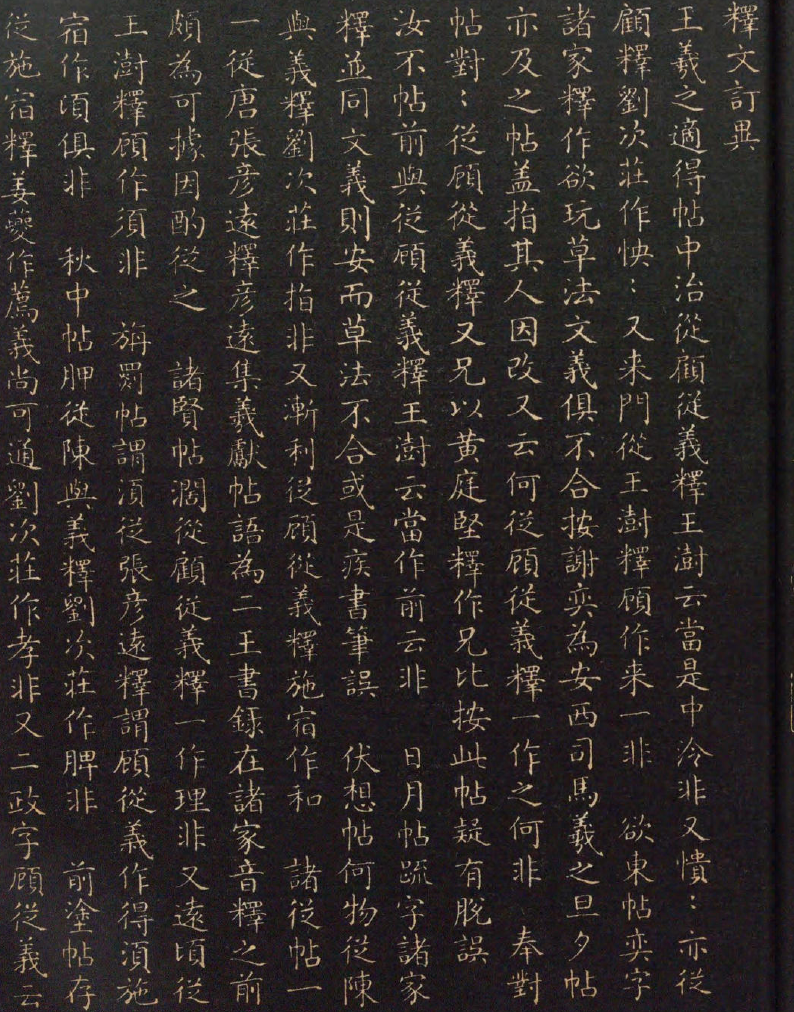 釋文訂異
王羲之適得帖中治從顧從義釋王澍云當是中冷非又憒:亦從
顧釋劉次莊作怏:又来門從王澍釋顧作来一非　欲東帖奕字
諸家釋作欲玩草法文義俱不合按謝奕為安西司馬羲之旦夕帖
亦及之帖盖指其人因改又云何從顧從義釋一作之何非　奉對
帖對:從顧從義釋又兄以黄庭堅釋作兄比按此帖疑有脱誤
汝不帖前與從顧從義釋王澍云當作前云非　日月帖䟽字諸家
釋並同文義則安而草法不合或是疾書筆誤　伏想帖何物從陳
與義釋劉次莊作指非又漸利從顧從義釋施宿作和　諸從帖一
一從唐張彦遠釋彦遠集羲獻帖語為二王書録在諸家音釋之前
頗為可據因酌從之　諸賢帖濶從顧從義釋一作理非又遠頃從
王澍釋顧作須非　旃罽帖謂湏從張彦遠釋謂顧從義作得湏施
宿作頃俱非　秋中帖胛從陳與義釋劉次莊作脾非　前塗帖存
從施宿釋姜夔作薦義尚可通劉次莊作孝非又二政字顧從義云